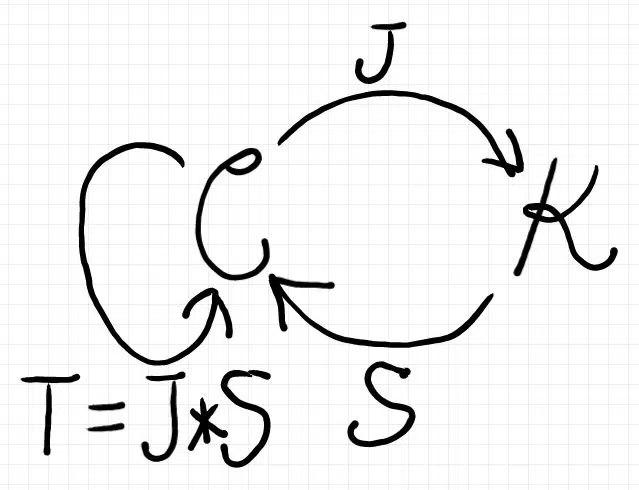 J
C K
S
T = J * S